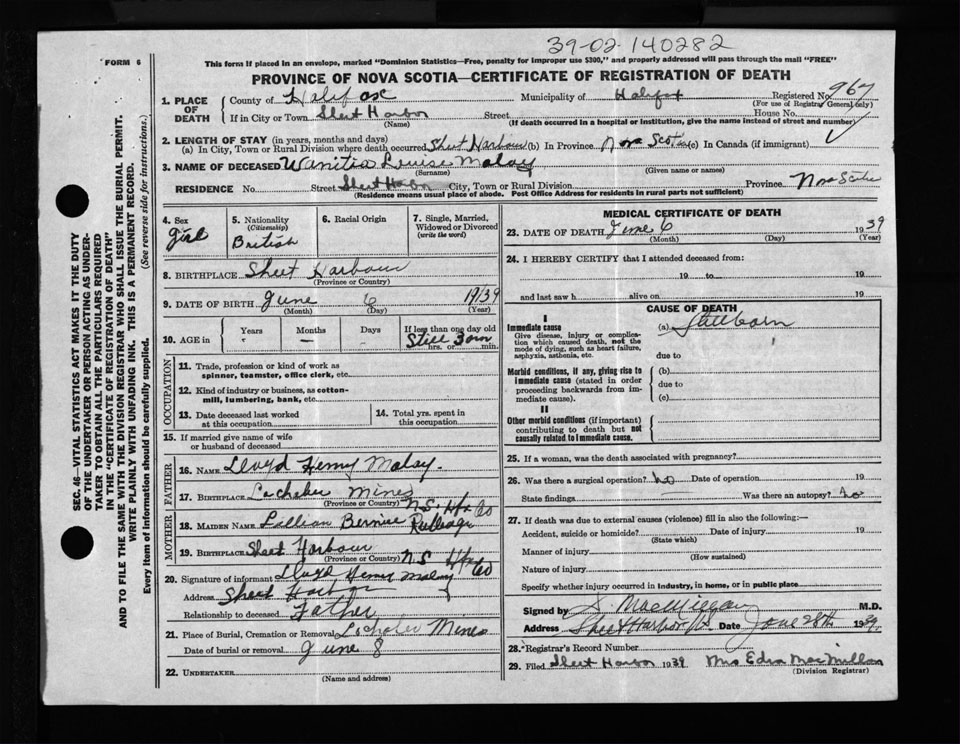 39-02-140282
FORM 6
This form if placed in an envelope, marked "Dominion Statistics—Free, penalty for improper use $300," and properly addressed will pass through the mail "FREE"
PROVINCE OF NOVA SCOTIA—CERTIFICATE OF REGISTRATION OF DEATH
1. PLACE OF DEATH County of Halifax Municipality of Halifax Registered No. 967
(For use of Registrar General only)
If in City or Town Sheet Harbor Street House No.
(Name) (If death occurred in a hospital or institution, give the name instead of street and number)
2. LENGTH OF STAY (in years, months and days)
(a) In City, Town or Rural Division where death occurred Sheet Harbour (b) In Province Nova Scotia (c) In Canada (if immigrant)
3. NAME OF DECEASED Wanitia Louise Malay
(Surname) (Given name or names)
RESIDENCE No. Street Sheet Harbor City, Town or Rural Division Province Nova Scotia
(Residence means usual place of abode. Post Office Address for residents in rural parts not sufficient)
SEC. 46—VITAL STATISTICS ACT MAKES IT THE DUTY
OF THE UNDERTAKER OR PERSON ACTING AS UNDER-
TAKER TO OBTAIN ALL THE PARTICULARS REQUIRED
IN THE "CERTIFICATE OF REGISTRATION OF DEATH"
AND TO FILE THE SAME WITH THE DIVISION REGISTRAR WHO SHALL ISSUE THE BURIAL PERMIT.
WRITE PLAINLY WITH UNFADING INK. THIS IS A PERMANENT RECORD.
Every item of Information should be carefully supplied. (See reverse side for instructions.)
4. Sex girl
5. Nationality (Citizenship) British
6. Racial Origin
7. Single, Married, Widowed or Divorced (write the word)
8. BIRTHPLACE Sheet Harbour
(Province or Country)
9. DATE OF BIRTH June 6 1939
(Month) (Day) (Year)
10. AGE in Years Months Days If less than one day old
— — Still Born
hrs. or min.
OCCUPATION
11. Trade, profession or kind of work as
spinner, teamster, office clerk, etc.
12. Kind of industry or business, as cotton-
mill, lumbering, bank, etc.
13. Date deceased last worked
at this occupation
14. Total yrs. spent in
this occupation
15. If married give name of wife
or husband of deceased
FATHER
16. Name Lloyd Henry Malay
17. Birthplace Lochaber Mines
(Province or Country) N.S Hfx Co
MOTHER
18. MAIDEN NAME Lillian Bernice Rutledge
19. Birthplace Sheet Harbour
(Province or Country) N S Hfx Co
20. Signature of informant Lloyd Henry Malay
Address Sheet Harbor
Relationship to deceased Father
21. Place of Burial, Cremation or Removal Lochaber Mines
Date of burial or removal June 8
22. UNDERTAKER
(Name and address)
MEDICAL CERTIFICATE OF DEATH
23. DATE OF DEATH June 6 1939
(Month) (Day) (Year)
24. I HEREBY CERTIFY that I attended deceased from:
19 to 19
and last saw h alive on 19
CAUSE OF DEATH
I
Immediate cause
Give disease, injury or complica-
tion which caused death, not the
mode of dying, such as heart failure,
asphyxia, asthenia, etc.
(a) Stillborn
due to
Morbid conditions, if any, giving rise to
immediate cause (stated in order
proceeding backwards from im-
mediate cause).
(b)
due to
(c)
II
Other morbid conditions (if important)
contributing to death but not
causally related to immediate cause.
25. If a woman, was the death associated with pregnancy?
26. Was there a surgical operation? no Date of operation 19
State findings — Was there an autopsy? no
27. If death was due to external causes (violence) fill in also the following:—
Accident, suicide or homicide? Date of injury 19
(State which)
Manner of injury
(How sustained)
Nature of injury
Specify whether injury occurred in industry, in home, or in public place
Signed by M.D.
Address Sheet Harbor Date June 28th 1939
28. Registrar's Record Number
29. Filed Sheet Harbor 1939 Mrs Edna MacMillan
(Division Registrar)